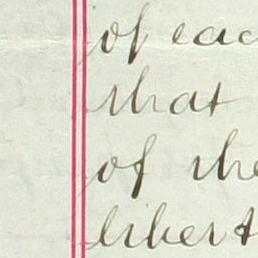 of eac
that
of the
libert